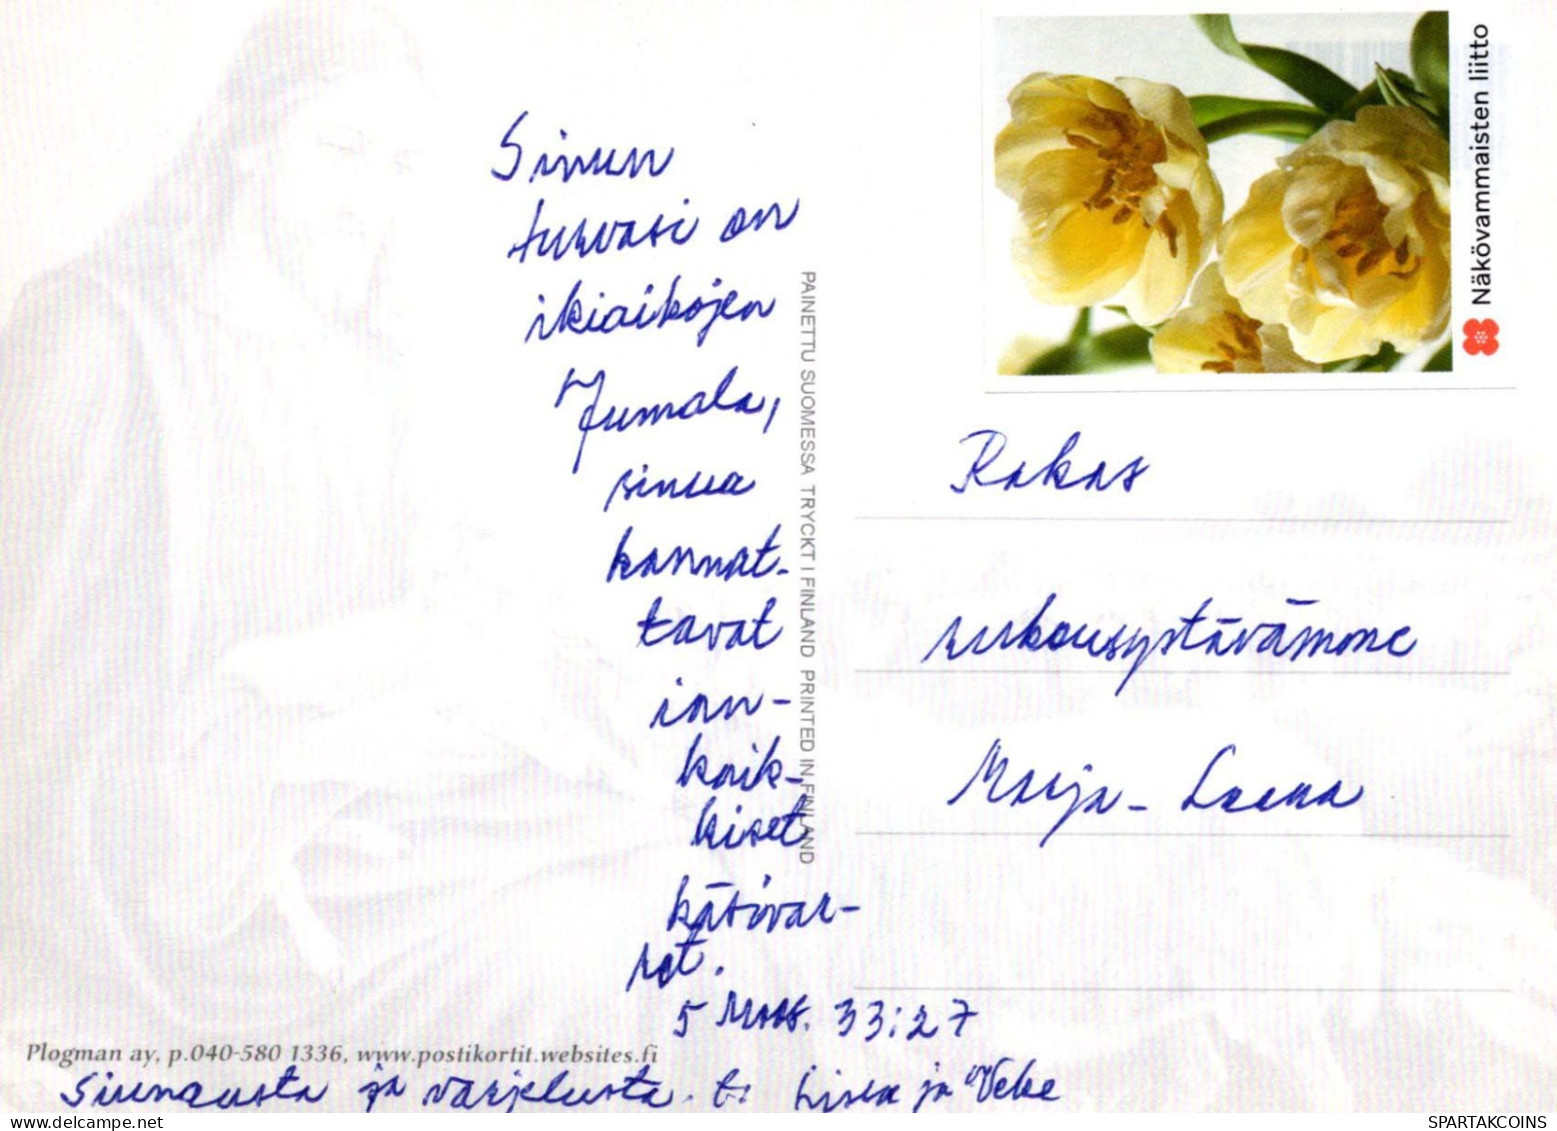 Sinun
turvasi on
ikiaikojen
Jumala,
sinua
kannat-
tavat
ian-
kaik-
kiset
käsivar-
ret.
5 Moos. 33:27
Siunausta ja varjelusta. t: Liisa ja Veke
Plogman ay, p.040-580 1336, www.postikortit.websites.fi
PAINETTU SUOMESSA TRYCKT I FINLAND PRINTED IN FINLAND
Näkövammaisten liitto
Rakas
rukousystävämme
Marja-Leena
SPARTAKCOINS